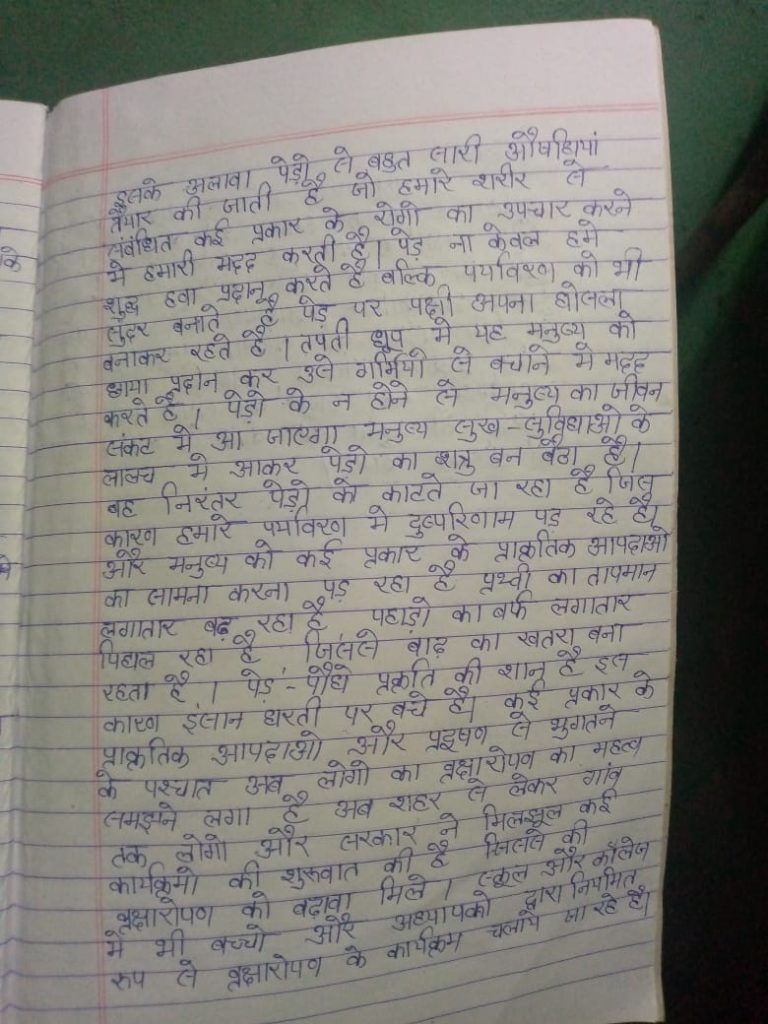 इसके अलावा पेड़ो से बहुत सारी औषधियां
तैयार की जाती है जो हमारे शरीर से
संबंधित कई प्रकार के रोगो का उपचार करने
मे हमारी मदद करती है। पेड़ ना केवल हमे
शुद्ध हवा प्रदान करते है बल्कि पर्यावरण को भी
सुंदर बनाते है पेड़ पर पक्षी अपना घोसला
बनाकर रहते है। तपती धुप मे यह मनुष्य को
छाया प्रदान कर उसे गर्मियो से बचाने मे मदद
करते है। पेड़ो के न होने से मनुष्य का जीवन
संकट मे आ जाएगा मनुष्य सुख-सुविधाओ के
लालच मे आकर पेड़ो का शत्रु बन बैठा है।
वह निरंतर पेड़ो को काटते जा रहा है जिस
कारण हमारे पर्यावरण मे दुष्परिणाम पड़ रहे है।
और मनुष्य को कई प्रकार के प्राक्रतिक आपदाओ
का सामना करना पड़ रहा है प्रथ्वी का तापमान
लगातार बढ़ रहा है पहाड़ो का बर्फ लगातार
पिघल रहा है जिससे बाढ़ का खतरा बना
रहता है। पेड़-पौधे प्रक्रति की शान है इस
कारण इंसान धरती पर बचे है। कई प्रकार के
प्राक्रतिक आपदाओ और प्रदूषण से भुगतने
के पश्चात अब लोगो का व्रक्षारोपण का महत्व
समझने लगा है अब शहर से लेकर गांव
तक लोगो और सरकार ने मिलझूल कई
कार्यक्रमो की शुरुवात की है जिससे की
व्रक्षारोपण को बढ़ावा मिले। स्कूल और कॉलेज
मे भी बच्चो और अध्यापको द्वारा नियमित
रुप से व्रक्षारोपण के कार्यक्रम चलाये जा रहे है।